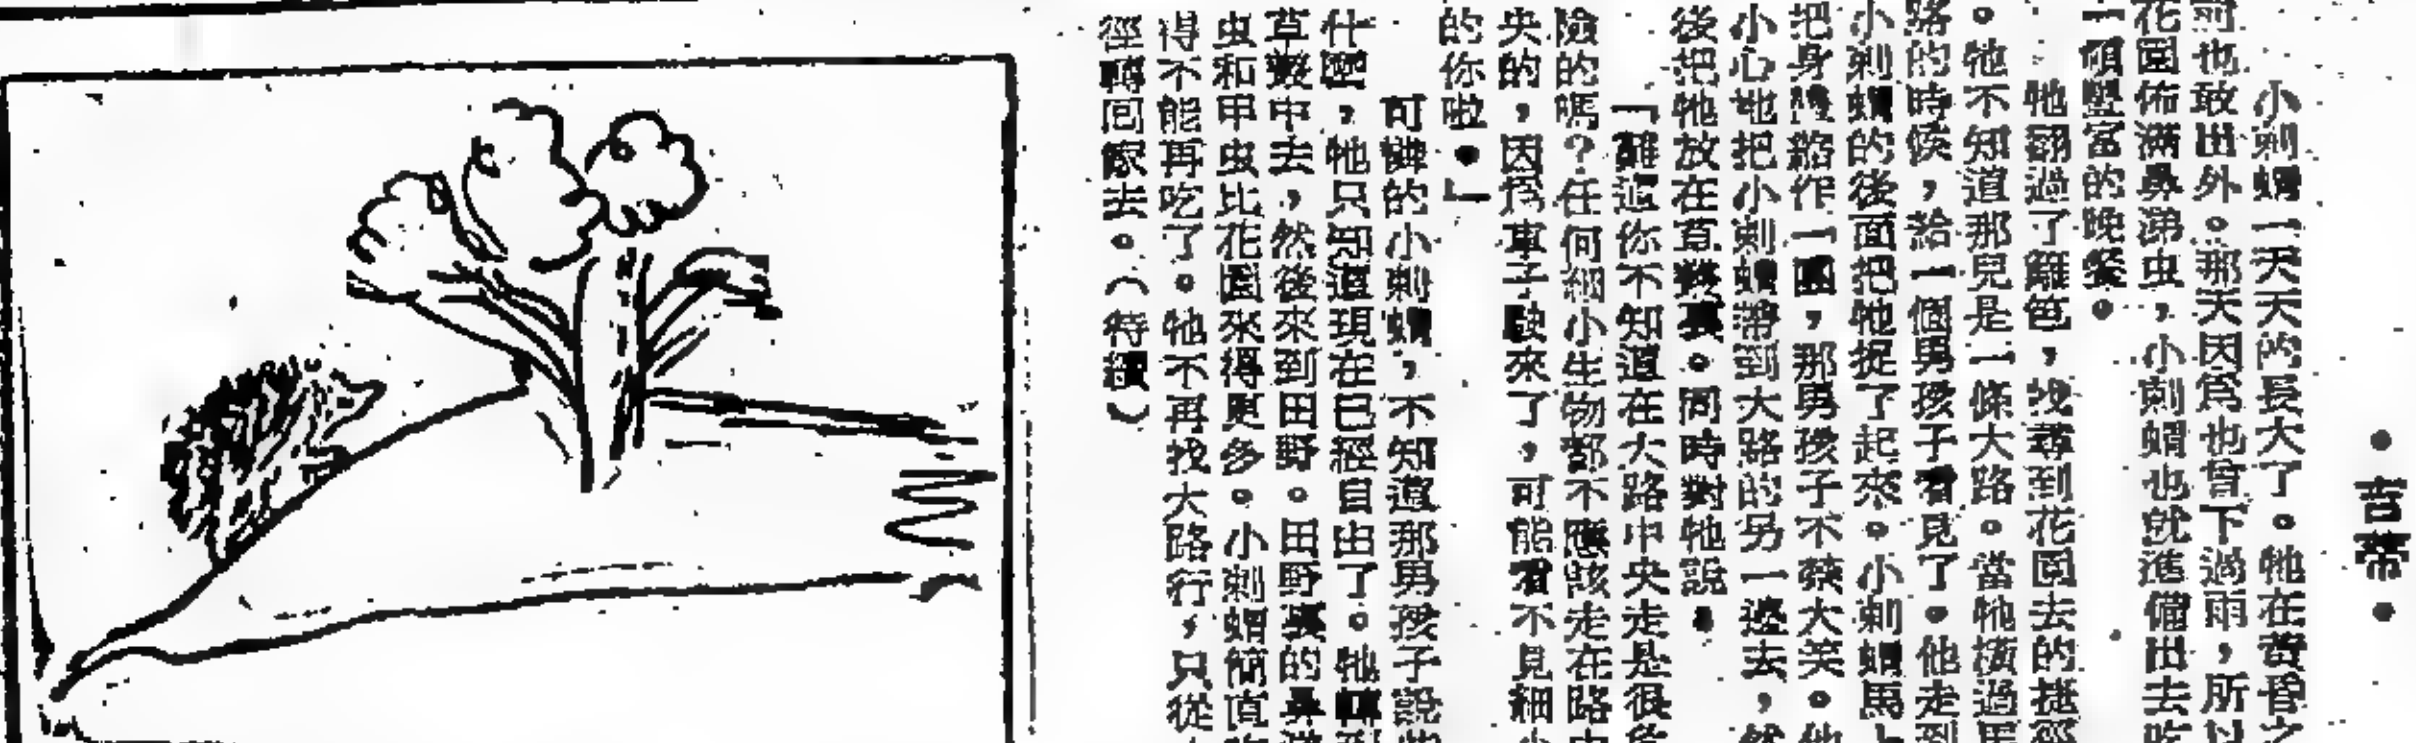 •吉蒂•
小刺蝟一天天的長大了。牠在黃昏之
前也敢出外。那天因爲也曾下過雨,所以
花園佈滿鼻涕虫,小刺蝟也就準備出去吃
一頓豐富的晚餐。
牠翻過了籬笆,找尋到花園去的捷徑
。牠不知道那兒是一條大路。當牠橫過馬
路的時候,給一個男孩子看見了。他走到
小刺蝟的後面把牠捉了起來。小刺蝟馬上
把身體縮作一團,那男孩子不禁大笑。他
小心地把小刺蝟帶到大路的另一邊去,然
後把牠放在草叢裏。同時對牠說:
「難道你不知道在大路中央走是很危
險的嗎?任何細小生物都不應該走在路中
央的,因爲車子駛來了,可能看不見細小
的你啦。」
可憐的小刺蝟,不知道那男孩子說些
什麼,牠只知道現在已經自由了。牠轉到
草叢中去,然後來到田野。田野裏的鼻涕
虫和甲虫比花園來得更多。小刺蝟簡直吃
得不能再吃了。牠不再找大路行,只從
徑轉回家去。(待續)